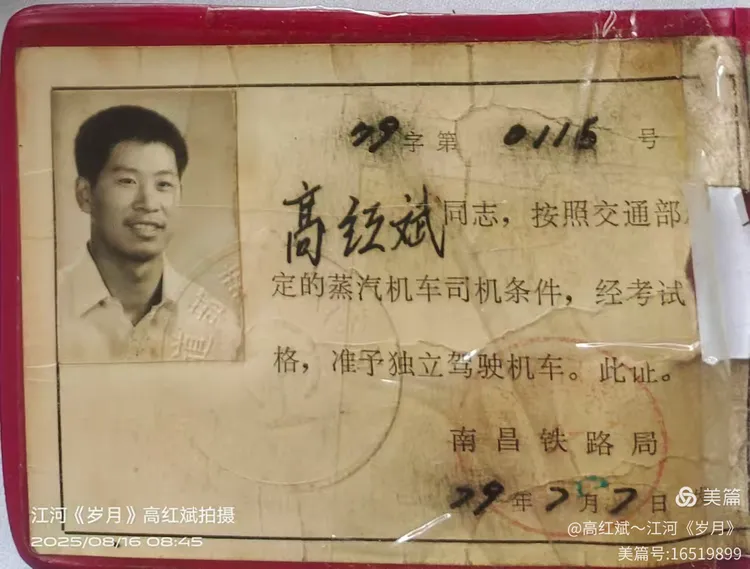 79字第 0115 号
高红斌同志，按照交通部
定的蒸汽机车司机条件，经考试
格，准予独立驾驶机车。此证。
南昌铁路局
79年7月7日
江河《岁月》高红斌拍摄
2025/08/16 08:45
美篇
@高红斌～江河《岁月》
美篇号:16519899